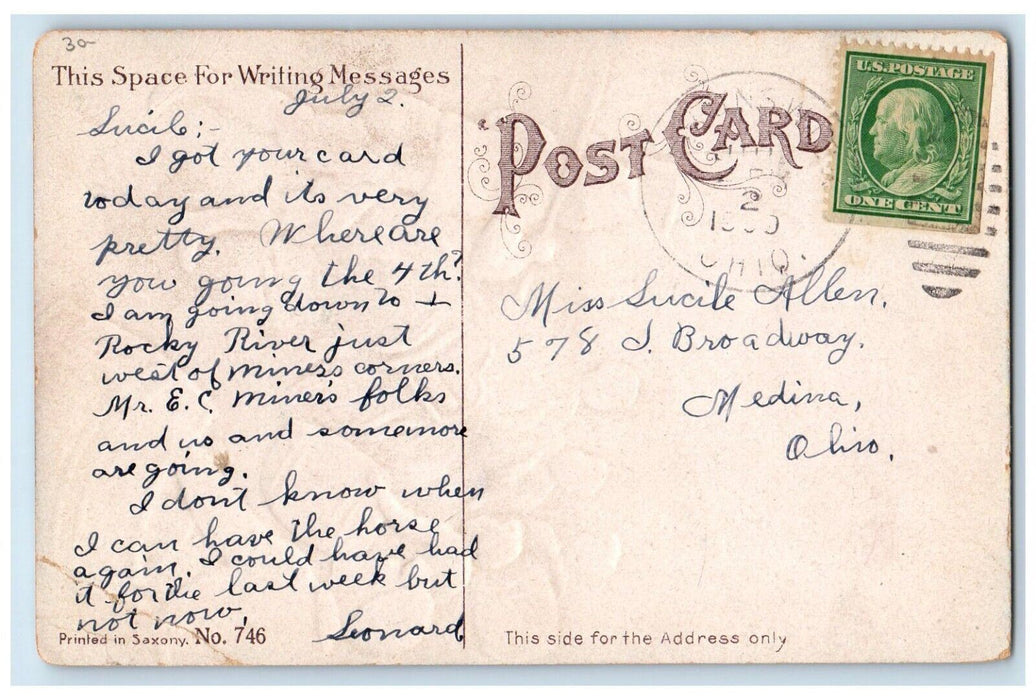 30
This Space For Writing Messages
July 2.
Lucile;-
I got your card
today and its very
pretty. Where are
you going the 4th?
I am going down to
Rocky River just
west of miners corners.
Mr. E. C. miners folks
and us and some more
are going.
I dont know when
I can have the horse
again. I could have had
it for the last week but
not now.
Leonard
Printed in Saxony. No. 746
POST CARD
2
OHIO.
U.S. POSTAGE
ONE CENT
Miss Lucile Allen.
578 S. Broadway.
Medina,
Ohio.
This side for the Address only